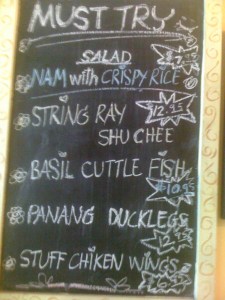 MUST TRY
SALAD
NAM with CRISPY RICE
STRING RAY $12.95
SHU CHEE
BASIL CUTTLE FISH
$10.95
PANANG DUCKLEGS
STUFF CHIKEN WINGS